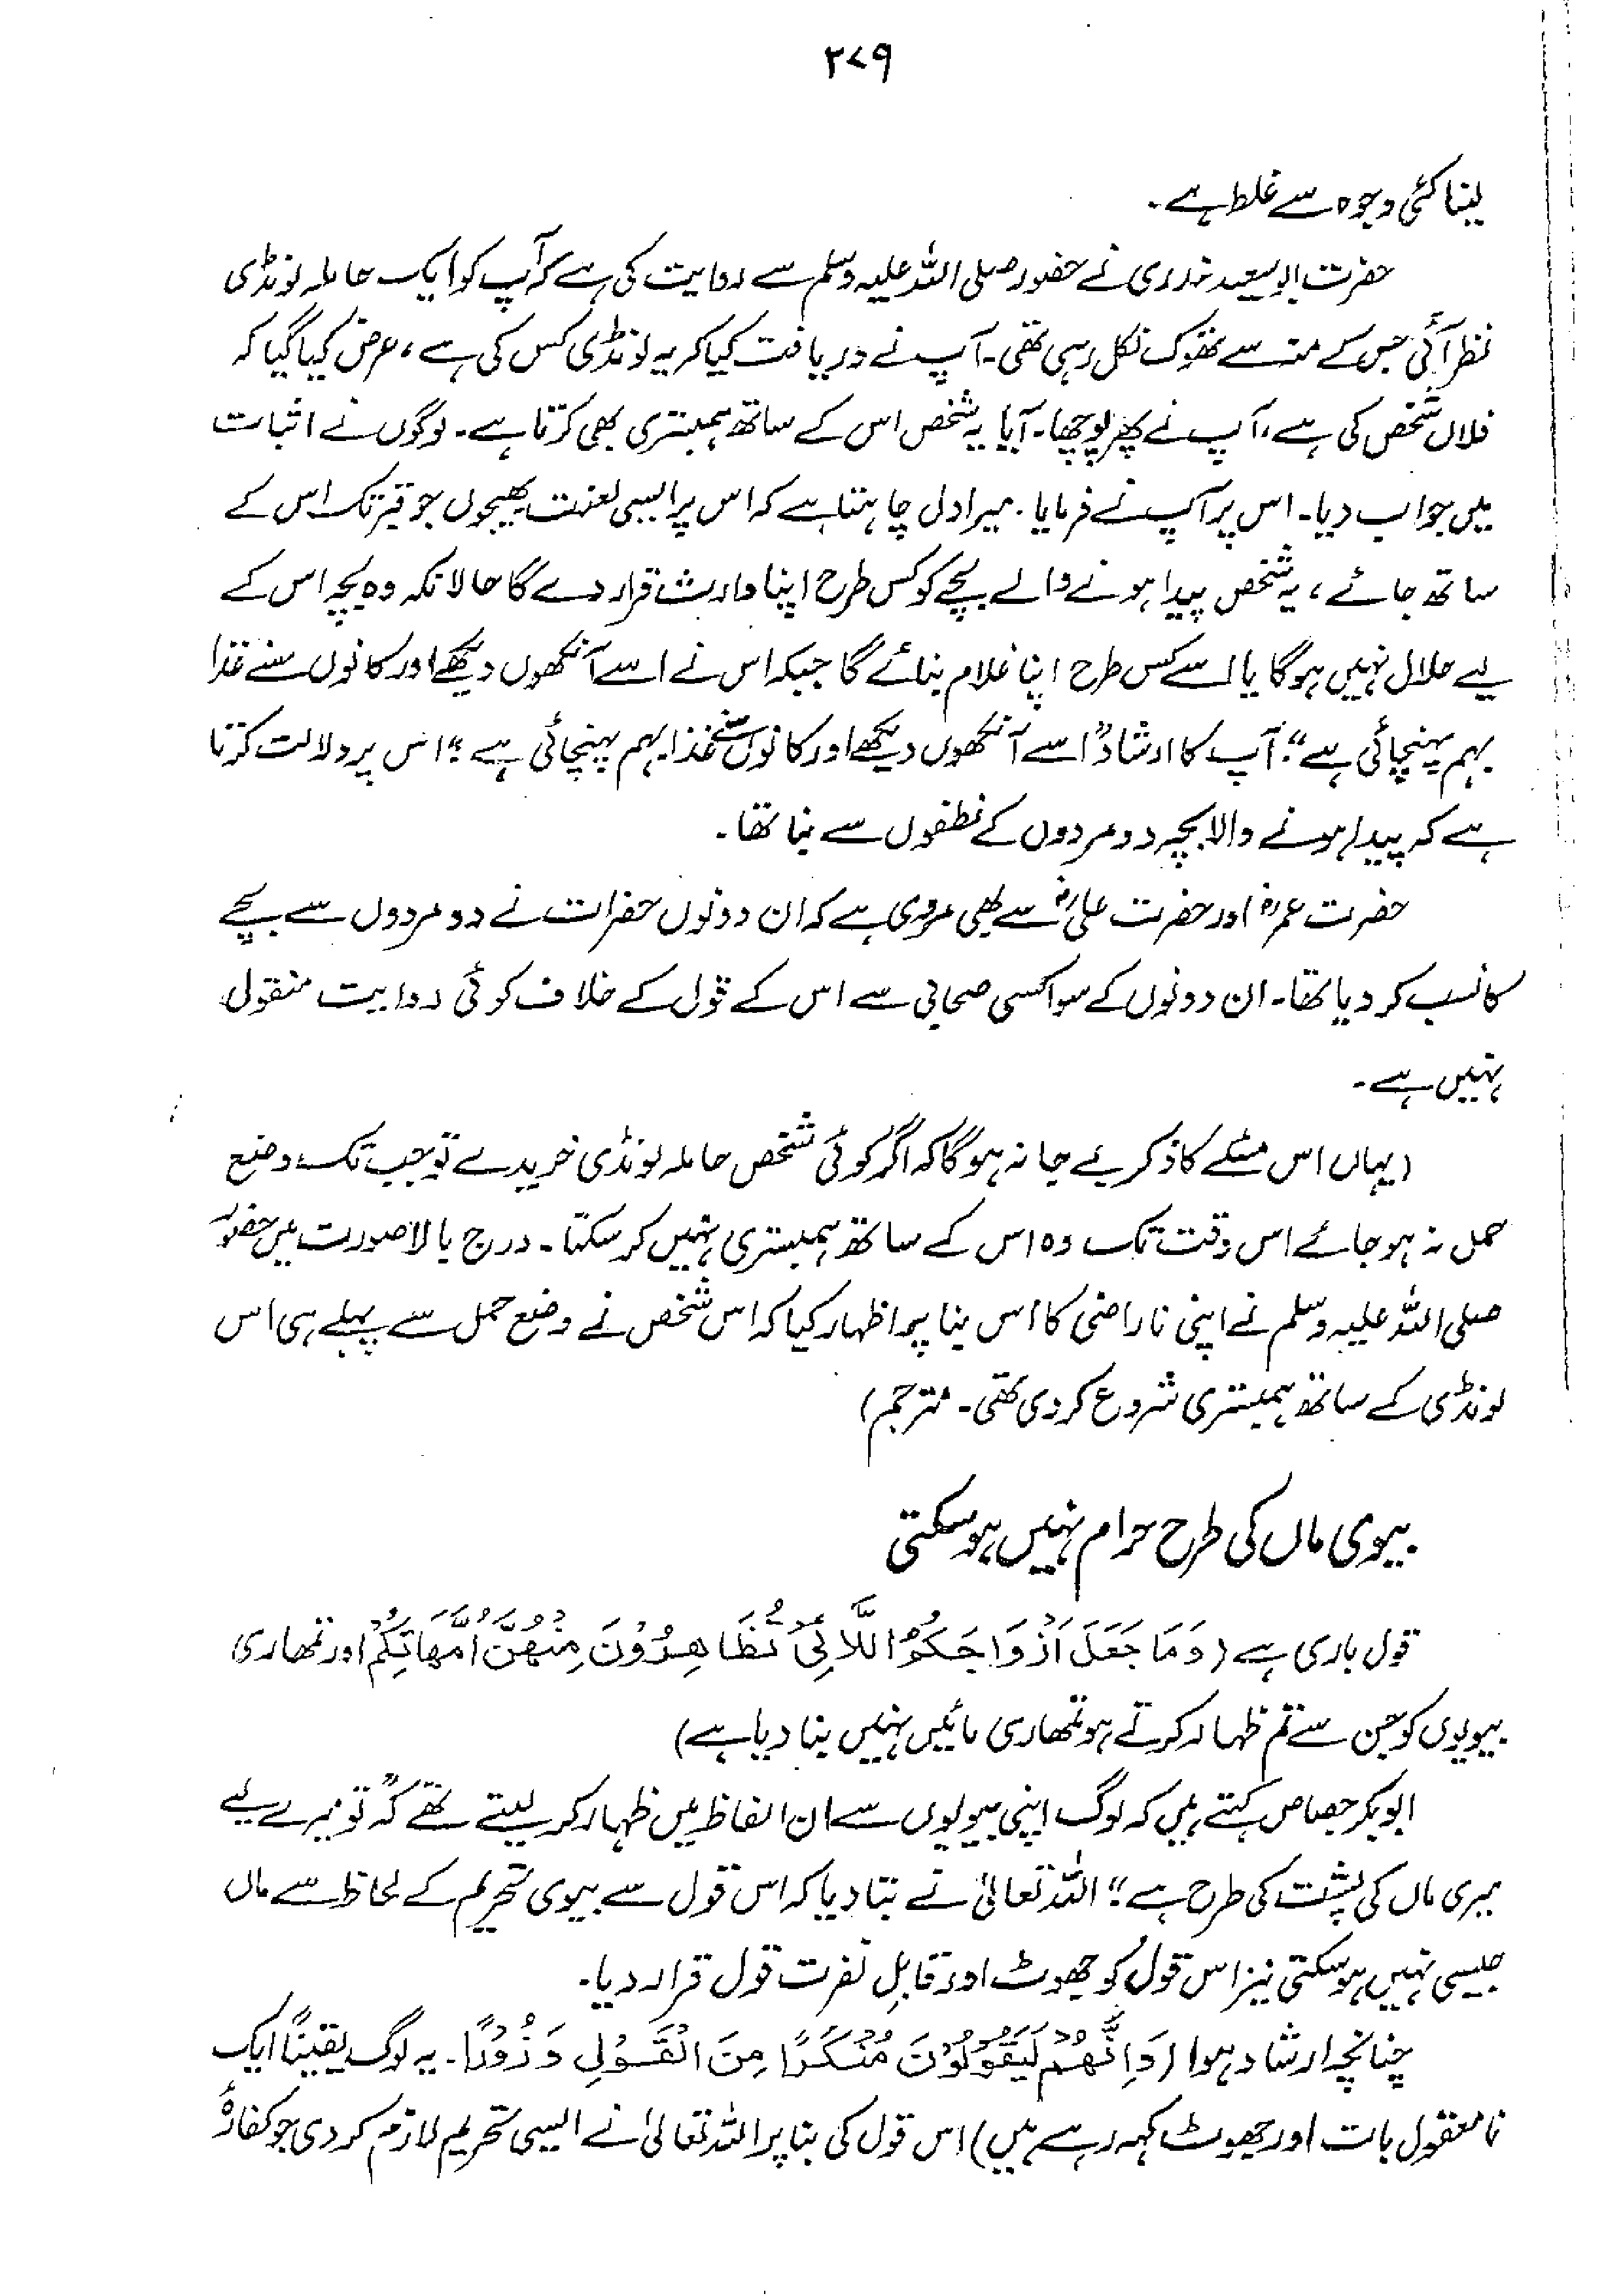 ۲۷۹
لینا کئی وجوہ سے غلط ہے۔
حضرت ابوسعید خدری نے حضور صلی اللہ علیہ وسلم سے روایت کی ہے کہ آپ کو ایک حاملہ لونڈی
نظر آئی جس کے منہ سے تھوک نکل رہی تھی۔ آپ نے دریافت کیا کہ یہ لونڈی کس کی ہے، عرض کیا گیا کہ
فلاں شخص کی ہے، آپ نے پھر پوچھا۔ آیا یہ شخص اس کے ساتھ ہمبستری بھی کرتا ہے۔ لوگوں نے اثبات
میں جواب دیا۔ اس پر آپ نے فرمایا۔ میرا دل چاہتا ہے کہ اس پر ایسی لعنت بھیجوں جو قبر تک اس کے
ساتھ جائے، یہ شخص پیدا ہونے والے بچے کو کس طرح اپنا وارث قرار دے گا حالانکہ وہ بچہ اس کے
لیے حلال نہیں ہوگا یا اسے کس طرح اپنا غلام بنائے گا جبکہ اس نے اسے آنکھوں دیکھے اور کانوں سنے غذا
بہم پہنچائی ہے"۔ آپ کا ارشاد "اسے آنکھوں دیکھے اور کانوں سنے غذا بہم پہنچائی ہے" اس پر دلالت کرتا
ہے کہ پیدا ہونے والا بچہ دو مردوں کے نطفوں سے بنا تھا۔
حضرت عمرؓ اور حضرت علیؓ سے بھی مروی ہے کہ ان دونوں حضرات نے دو مردوں سے بچے
کا نسب کر دیا تھا۔ ان دونوں کے سوا کسی صحابی سے اس کے قول کے خلاف کوئی روایت منقول
نہیں ہے۔
(یہاں اس مسئلے کا ذکر بے جا نہ ہوگا کہ اگر کوئی شخص حاملہ لونڈی خریدے تو جب تک وضع
حمل نہ ہو جائے اس وقت تک وہ اس کے ساتھ ہمبستری نہیں کر سکتا۔ درج بالا صورت میں حضور
صلی اللہ علیہ وسلم نے اپنی ناراضی کا اس بنا پر اظہار کیا کہ اس شخص نے وضع حمل سے پہلے ہی اس
لونڈی کے ساتھ ہمبستری شروع کر دی تھی۔ مترجم)
بیوی ماں کی طرح حرام نہیں ہو سکتی
قول باری ہے (وَمَا جَعَلَ اَزْوَاجَكُمُ اللَّائِیْ تُظَاهِرُوْنَ مِنْهُنَّ اُمَّهَاتِكُمْ اور تمھاری
بیویوں کو جن سے تم ظہار کرتے ہو تمھاری مائیں نہیں بنا دیا ہے)
ابوبکر جصاص کہتے ہیں کہ لوگ اپنی بیویوں سے ان الفاظ میں ظہار کر لیتے تھے کہ "تو میرے لیے
میری ماں کی پشت کی طرح ہے" اللہ تعالیٰ نے بتا دیا کہ اس قول سے بیوی تحریم کے لحاظ سے ماں
جیسی نہیں ہو سکتی نیز اس قول کو جھوٹ اور قابلِ نفرت قول قرار دیا۔
چنانچہ ارشاد ہوا (وَاِنَّهُمْ لَيَقُوْلُوْنَ مُنْكَرًا مِنَ الْقَوْلِ وَزُوْرًا۔ یہ لوگ یقیناً ایک
نامعقول بات اور جھوٹ کہہ رہے ہیں) اس قول کی بنا پر اللہ تعالیٰ نے ایسی تحریم لازم کر دی جو کفارۂ